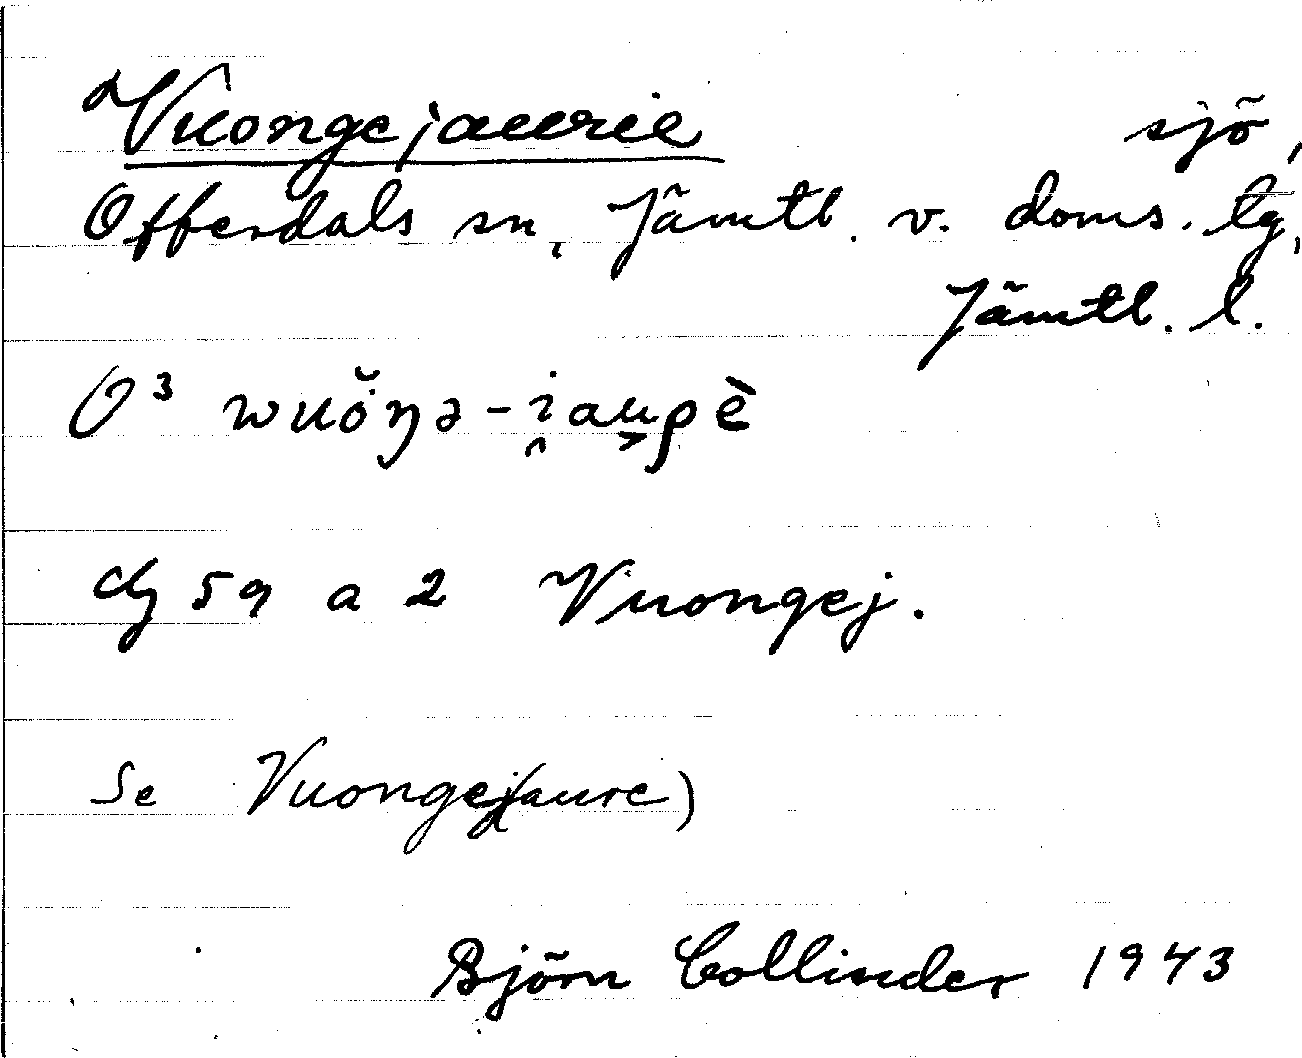 Vuongejaurie sjö,
Offerdals sn, Jämtl. v. doms. lg,
Jämtl. l.
O³ wuŏ̇ŋə-i̯au̬ρē̆
dg 59 a 2 Vuongej.
Se Vuongej(aure)
Björn Collinder 1943